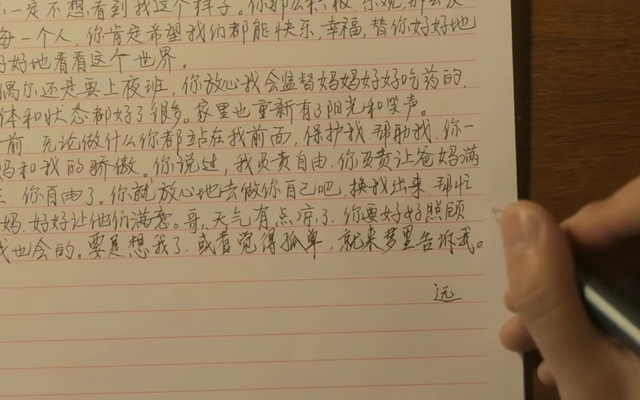 一定不想看到我这个样子。你那么积极
每一个人，你肯定希望我们都能快乐、幸福，替你好好地
好地看看这个世界。
偶尔还是要上夜班，你放心我会监督妈妈好好吃药的，
体和状态都好了很多。家里也重新有了阳光和笑声。
前，无论做什么你都站在我前面，保护我，帮助我，你一
妈和我的骄傲。你说过，我负责自由，你负责让爸妈满
你自由了。你就放心地去做你自己吧，换我出来，帮忙
妈，好好让他们满意。哥，天气有点凉了，你要好好照顾
我也会的。要是想我了，或者觉得孤单，就来梦里告诉我。
远